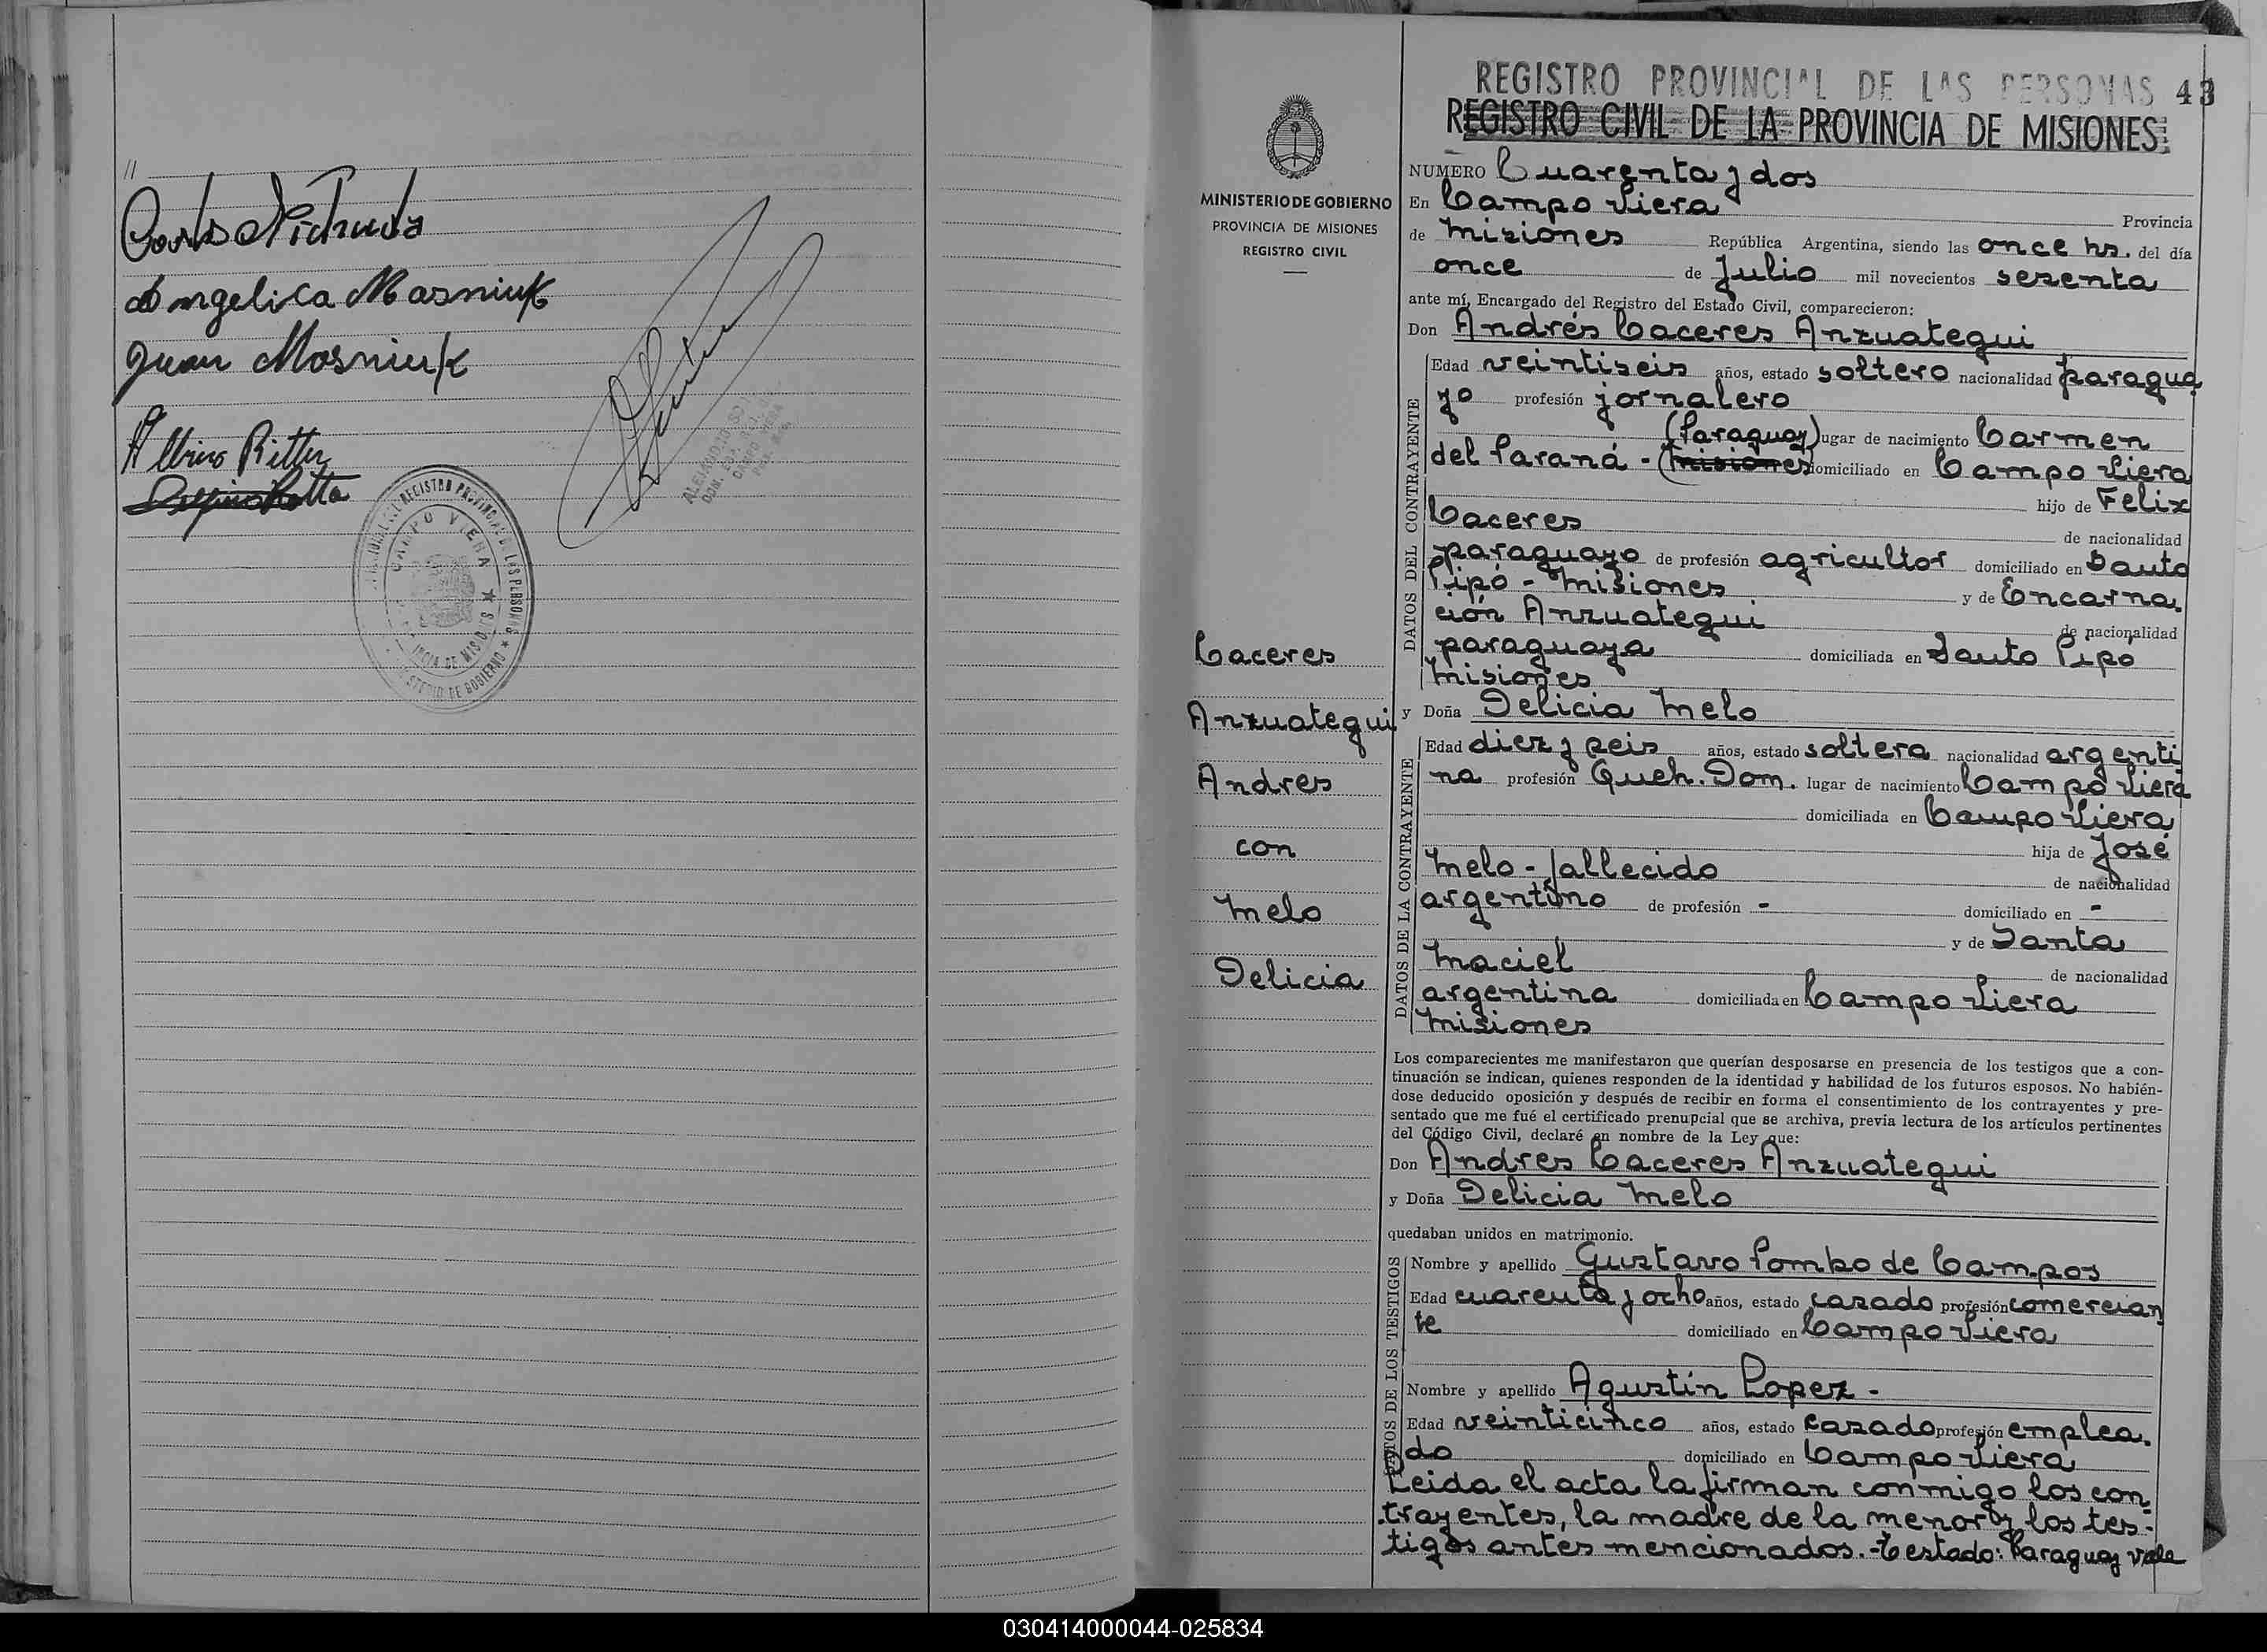 //
Angelica Masniuk
Juan Mosniuk
Albino Ritter
CAMPO VIERA
MINISTERIO DE GOBIERNO
PROVINCIA DE MISIONES
REGISTRO CIVIL
Caceres
Anzuategui
Andres
con
Melo
Delicia
REGISTRO PROVINCIAL DE LAS PERSONAS 43
REGISTRO CIVIL DE LA PROVINCIA DE MISIONES
NUMERO Cuarenta y dos
En Campo Viera Provincia
de Misiones República Argentina, siendo las once hs. del día
once de Julio mil novecientos sesenta
ante mí, Encargado del Registro del Estado Civil, comparecieron:
Don Andrés Caceres Anzuategui
DATOS DEL CONTRAYENTE
Edad veintiseis años, estado soltero nacionalidad paragua
yo profesión jornalero
(Paraguay) lugar de nacimiento Carmen
del Paraná - (Misiones domiciliado en Campo Viera
hijo de Felix
Caceres
de nacionalidad
paraguayo de profesión agricultor domiciliado en Santo
Pipó - Misiones y de Encarna
ción Anzuategui de nacionalidad
paraguaya domiciliada en Santo Pipó
Misiones
y Doña Delicia Melo
DATOS DE LA CONTRAYENTE
Edad diez y seis años, estado soltera nacionalidad argenti
na profesión Queh. Dom. lugar de nacimiento Campo Viera
domiciliada en Campo Viera
hija de José
Melo - fallecido de nacionalidad
argentino de profesión - domiciliado en -
y de Santa
Maciel de nacionalidad
argentina domiciliada en Campo Viera
Misiones
Los comparecientes me manifestaron que querían desposarse en presencia de los testigos que a con-
tinuación se indican, quienes responden de la identidad y habilidad de los futuros esposos. No habién-
dose deducido oposición y después de recibir en forma el consentimiento de los contrayentes y pre-
sentado que me fué el certificado prenupcial que se archiva, previa lectura de los artículos pertinentes
del Código Civil, declaré en nombre de la Ley que:
Don Andres Caceres Anzuategui
y Doña Delicia Melo
quedaban unidos en matrimonio.
DATOS DE LOS TESTIGOS
Nombre y apellido Gustavo Pombo de Campos
Edad cuarenta y ocho años, estado casado profesión comercian
te domiciliado en Campo Viera
Nombre y apellido Agustín Lopez -
Edad veinticinco años, estado casado profesión emplea.
do domiciliado en Campo Viera
Leida el acta la firman conmigo los con-
trayentes, la madre de la menor y los tes-
tigos antes mencionados. - Testado: Paraguay vale
030414000044-025834